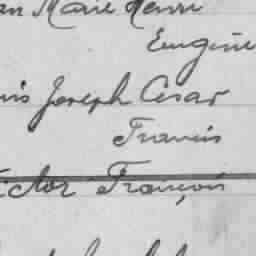 an Marie Henri
Eugène
uis Joseph César
Francis
ictor François